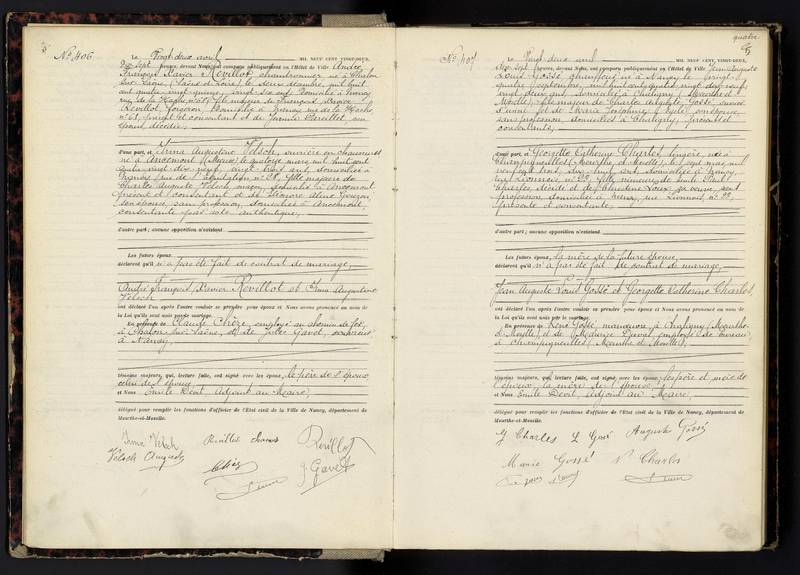 No 406
Le Vingt deux avril MIL NEUF CENT VINGT-DEUX,
Dix sept heures, devant Nous ont comparu publiquement en l'Hôtel de Ville André
François Xavier Revillot, chaudronnier né à Chalon
sur Saône (Saône et Loire), le deux décembre mil huit
cent quatre vingt quinze, vingt six ans, domicilié à Nancy,
rue de la Hache n° 61, fils majeur de François Xavier
Revillot, forgeron, domicilié à Nancy rue de la Hache
n° 61, présent et consentant et de Jeannie son
épouse, décédée,
d'une part, et Irma Augustine Velsch, ouvrière en chaussures
née à Ancemont (Meuse) le quatorze mars mil huit cent
quatre vingt dix neuf, vingt trois ans, domiciliée à
Nancy, rue de n° 28, fille majeure de
Charles Auguste Velsch, maçon, domicilié à Ancemont
présent et consentant et de
son épouse, sans profession, domiciliée à Ancemont,
consentante par acte authentique,
d'autre part ; aucune opposition n'existant
Les futurs époux
déclarent qu'il n'a pas été fait de contrat de mariage,
André François Xavier Revillot et Irma Augustine
Velsch
ont déclaré l'un après l'autre vouloir se prendre pour époux et Nous avons prononcé au nom de
la Loi qu'ils sont unis par le mariage.
En présence de Claude Chèze, employé au chemin de fer,
à Chalon sur Saône, et de Jules Gavet,
à Nancy,
témoins majeurs, qui, lecture faite, ont signé avec les époux, le père de l'époux
celui de l'épouse
et Nous Emile Devit, Adjoint au Maire,
délégué pour remplir les fonctions d'officier de l'Etat civil de la Ville de Nancy, département de
Meurthe-et-Moselle.
Irma Velsch Revillot Revillot
Velsch Auguste Chèze J. Gavet
No 407
Le Vingt deux avril MIL NEUF CENT VINGT-DEUX,
dix sept heures, devant Nous, ont comparu publiquement en l'Hôtel de Ville Jean Auguste
Louis Gossé, chauffeur, né à Nancy le vingt
quatre septembre, mil huit cent quatre vingt dix neuf,
vingt deux ans, domicilié à Chaligny (Meurthe et
Moselle), fils majeur de Charles Auguste Gossé, ouvrier
d'usine et de Marie Joséphine son épouse,
sans profession, domiciliés à Chaligny, présents et
consentants,
d'une part, et Georgette Catherine Charles, lingère, née à
Champigneulles (Meurthe et Moselle), le sept mai mil
neuf cent trois, dix huit ans, domiciliée à Nancy,
rue Lionnois, n° 22, fille mineure de Emile Paul
Charles, décédé et de Christine Loux, sa veuve, sans
profession, domiciliée à Nancy, rue Lionnois, n° 22,
présente et consentante,
d'autre part ; aucune opposition n'existant
Les futurs époux, la mère de la future épouse,
déclarent qu'il n'a pas été fait de contrat de mariage,
Jean Auguste Louis Gossé et Georgette Catherine Charles,
ont déclaré l'un après l'autre vouloir se prendre pour époux et Nous avons prononcé au nom de
la Loi qu'ils sont unis par le mariage.
En présence de René Gossé, manœuvre, à Chaligny (Meurthe
et Moselle) et de Maurice employé de bureau,
à Champigneulles (Meurthe et Moselle),
témoins majeurs, qui, lecture faite, ont signé avec les époux, les père et mère de
l'époux, la mère de l'épouse
et Nous Emile Devit, Adjoint au Maire,
délégué pour remplir les fonctions d'officier de l'Etat civil de la Ville de Nancy, département de
Meurthe-et-Moselle.
G Charles L Gossé Auguste Gossé
Marie Gossé Charles